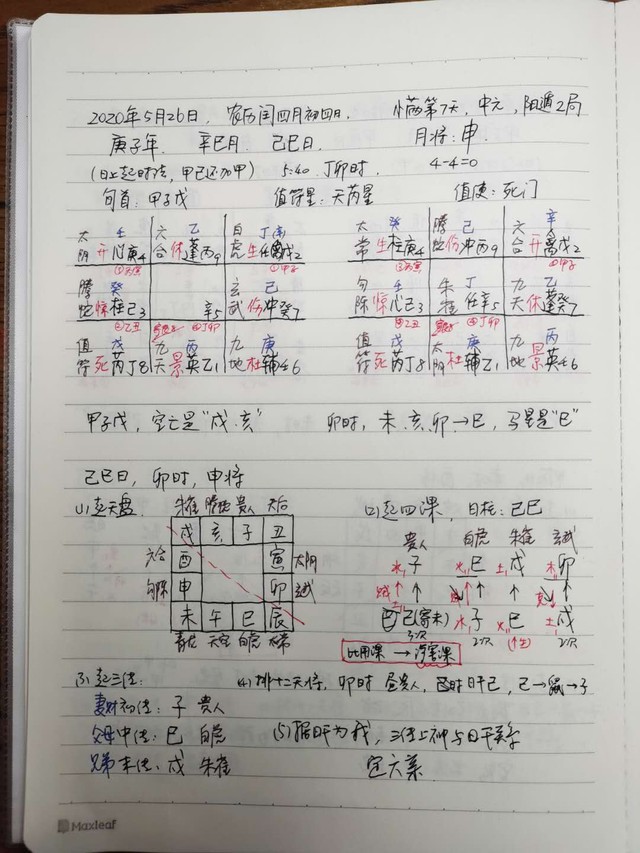 2020年5月26日，农历闰四月初四日，小满第7天，中元，阳遁2局
庚子年 辛巳月 己巳日. 月将：申.
(日上起时法，甲己还加甲) 5:40 丁卯时. 4-4=0
旬首：甲子戊 值符星：天芮星 值使：死门
太 壬 六 乙 白 丁
阴 开心庚4 合 休蓬丙9 虎 生任 戊2
太 癸 腾 己 六 辛
常 生柱庚4 蛇 伤冲丙9 合 开 戊2
腾 癸 玄 己
蛇 惊柱己3 辛5 武 伤冲癸7
勾 壬 朱 丁 九 乙
陈 惊心己3 雀 任辛5 天 休蓬癸7
值 戊 九 丙 九 庚
符 死芮丁8 天 景英乙1 地 杜辅壬6
值 戊 太 庚 九 丙
符 死芮丁8 阴 杜辅乙1 地 景英壬6
甲子戊，空亡是“戌.亥” 卯时，未.亥.卯→巳，马星是“巳”
己巳日，卯时，申将
(1)起天盘. 朱雀 腾蛇 贵人 天后
戌 亥 子 丑
六合 酉 寅 太阴
勾陈 申 卯 玄武
未 午 巳 辰
青龙 天空 白虎 太常
(2)起四课，日柱：己巳
贵人 白虎 朱雀 玄武
水 子 火 巳 土 戌 木 卯
己(寄未) 水 子 火 巳 土 戌
比用课 → 涉害课
(3)起三传：
妻财初传：子 贵人
父母中传：巳 白虎
兄弟末传：戌 朱雀
(4)排十二天将，卯时 昼贵人，日干己，己→鼠→子
(5)据日干为我，三传上神与日干关系
定六亲
Maxleaf